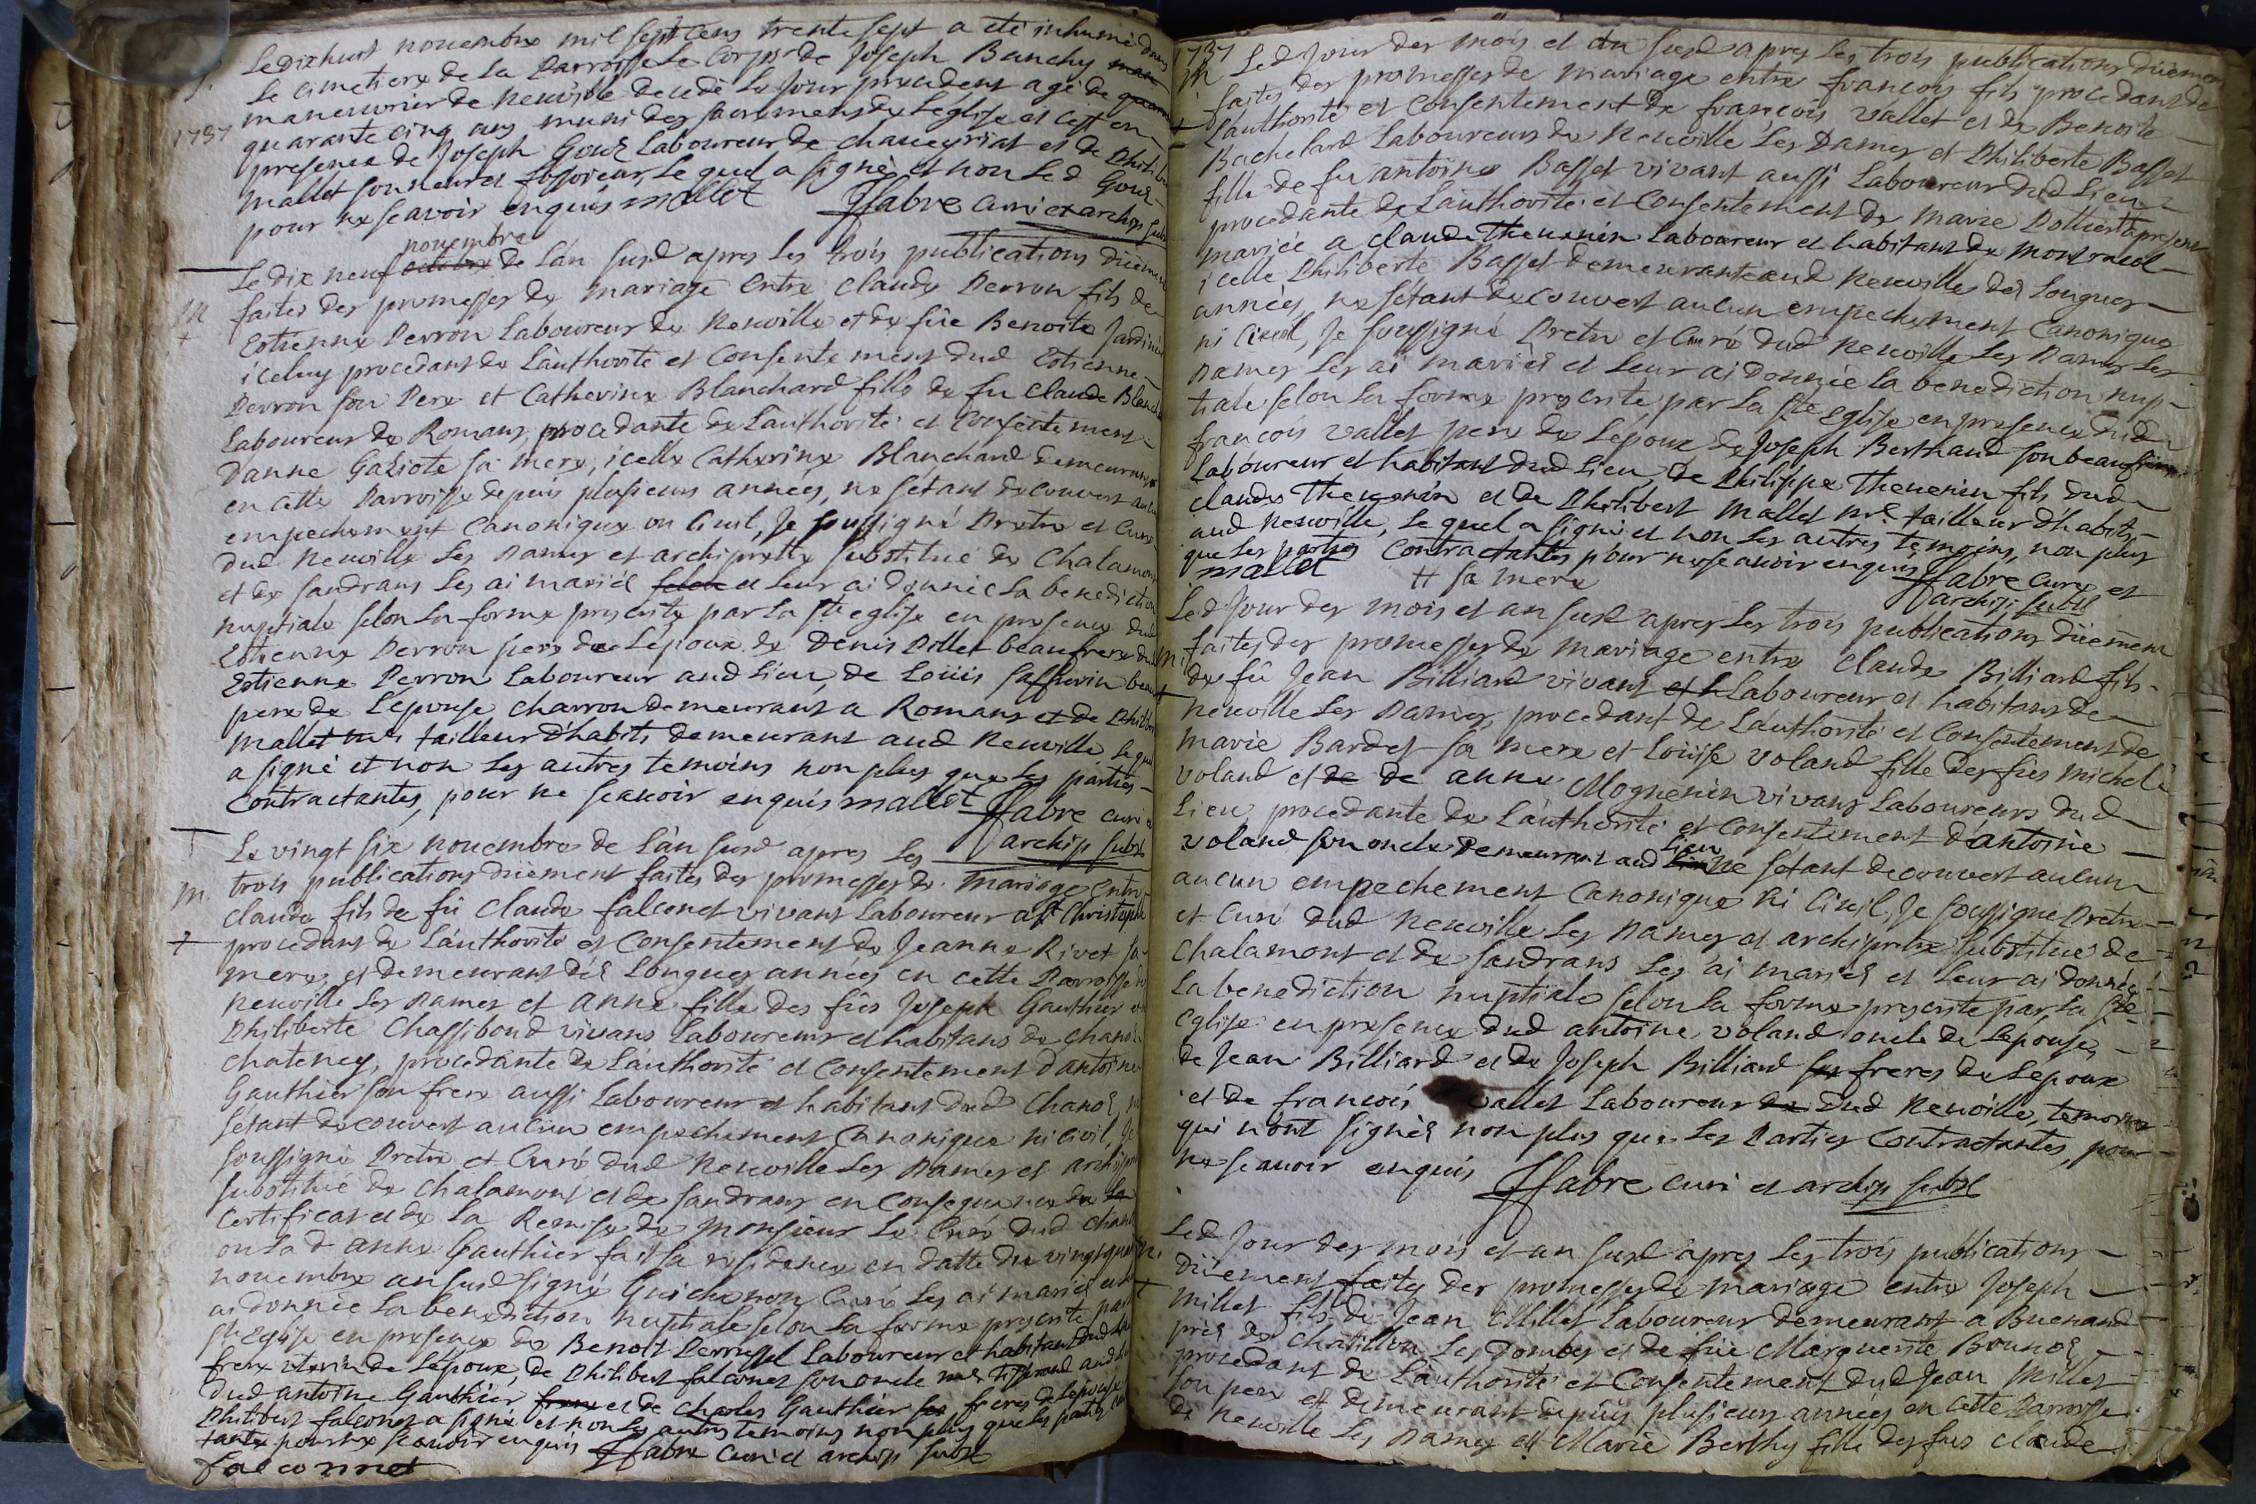 Le dixhuit novembre mil sept cens trente sept a été inhumé dans
S.
le cimetiere de la Parroisse le corps de Joseph Banchy
manouvrier de Neuville decedé le jour precedent agé de
1737
quarante cinq ans muni des sacremens de l'eglise et c'est en
presence de Joseph Gour Laboureur de chaveyriat et de Philibert
mallet sonneur et fossoieur, le quel a signé et non led Gour
pour ne scavoir enquis mallet JFabre curé et archip subst
Le dix neuf novembre de l'an susd apres les trois publications düement
M
faites des promesses de mariage entre claude Perron fils de
+
Estienne Perron Laboureur de Neuville et de füe Benoite Jardinie
iceluy procedant de l'authorité et consentement dud Estienne
Perron son Pere et Catherine Blanchard fille de fu claude Blanchard
laboureur de Romans, procedante de l'authorité et consentement
d'anne Gariote sa mere, icelle Catherine Blanchard demeurante
en cette Parroisse depuis plusieurs années, ne s'étant decouvert aucun
empechement Canonique ou Civil, Je soussigné Pretre et Curé
dud Neuville les Dames et archipretre substitué de Chalamont
et de sandrans les ai mariés et leur ai donnée la benediction
nuptiale selon la forme prescrite par la Ste eglise en presence dud
Estienne Perron pere de l'epoux de Denis Pillet beaufrere dud
Estienne Perron Laboureur aud lieu, de Loüis Saffurin beau
pere de l'epouse charron demeurant a Romans et de Philibert
Mallet tailleur d'habits demeurant aud Neuville, le quel
a signé et non les autres temoins non plus que les parties
contractantes, pour ne scavoir enquis mallet JFabre curé et
archip subst
Le vingt six novembre de l'an susd apres les
M.
trois publications düement faites des promesses de mariage entre
claude fils de fü Claude falconet vivant laboureur a St Christophe
+
procedant de l'authorité et consentement de Jeanne Rivet sa
mere, et demeurant dés longues années en cette Parroisse de
Neuville les Dames et anne fille des füs Joseph Gauthier et
Philiberte Chassiboud vivans laboureurs et habitans de chanoz
chateney, procedante de l'authorité et consentement d'antoine
Gauthier son frere aussi laboureur et habitant dud Chanoz, ne
s'étant decouvert aucun empechement Canonique ni civil, Je
soussigné Pretre et Curé dud Neuville les Dames et archipretre
substitué de chalamont et de sandrans en consequence du
certificat et de la Remise de Monsieur le Curé dud chanoz
ou lad anne Gauthier fait sa residence en datte du vingt quatre
novembre an susd signé Guichenon Curé les ai mariés et leur
ai donnée la benediction nuptiale selon la forme prescrite par la
Ste Eglise en presence de Benoit Perrussel laboureur et habitant dud lieu
frere uterin de l'epoux, de Philibert falconet son oncle me tisserand aud lieu
dud antoine Gauthier et de Charles Gauthier freres de l'epouse
Philibert falconet a signé et non les autres temoins non plus que les parties contrac
tantes pour ne scavoir enquis JFabre curé et archip subst
falconnet
1737
M
Led Jour des mois et an susd apres les trois publications düement
faites des promesses de mariage entre francois fils procedant de
+
l'authorité et consentement de francois vallet et de Benoite
Bachelard Laboureurs de Neuville les Dames et Philiberte Basset
fille de fu antoine Basset vivant aussi Laboureur dud lieu
procedante de l'authorité et consentement de Marie Pollier ++ a present
mariée a claude Thevenin laboureur et habitant de Montracol
icelle Philiberte Basset demeurante aud Neuville dés longues
années, ne s'étant decouvert aucun empechement Canonique
ni Civil, Je soussigné Pretre et Curé dud Neuville les Dames les
Dames les ai mariés et leur ai donnée la benediction nup-
tiale selon la forme prescrite par la Ste Eglise en presence dud
francois vallet pere de l'epoux de Joseph Berthaud son beaufrere
laboureur et habitant dud lieu, de Philippe Thevenin fils dud
claude Thevenin et de Philibert Mallet me tailleur d'habits
aud Neuville, le quel a signé et non les autres temoins, non plus
que les parties Contractantes pour ne scavoir enquis JFabre curé et
mallet ++ sa mere archip. subst
Led Jour des mois et an susd apres les trois publications düement
M.
faites des promesses de mariage entre claude Billiard fils
+
de fû Jean Billiard vivant Laboureur et habitant de
Neuville les Dames, procedant de l'authorité et consentement de
Marie Bardet sa mere et Loüise voland fille des füs Michel
voland et de anne Mognenin vivans laboureurs dud
lieu, procedante de l'authorité et consentement d'antoine
voland son oncle demeurant aud lieu ne s'etant decouvert aucun
aucun empechement Canonique ni Civil, Je soussigné Pretre
et Curé dud Neuville les Dames et archipretre substitué de
chalamont et de sandrans les ai mariés et leur ai donnée
la benediction nuptiale selon la forme prescrite par la Ste
Eglise en presence dud antoine voland oncle de l'epouse,
de Jean Billiard et de Joseph Billiard freres de l'epoux
et de francois vallet laboureur dud Neuville, temoins
qui n'ont signés non plus que les Parties Contractantes, pour
ne scavoir enquis JFabre curé et archip subst
Led Jour des mois et an susd apres les trois publications
M.
düement faites des promesses de mariage entre Joseph
+
Millet fils de Jean Millet Laboureur demeurant a Buenand
près de Chatillon les Dombes et de füe Marguerite Bounoz
procedant de l'authorité et consentement dud Jean Millet
son pere et demeurant depuis plusieurs années en cette Parroisse
de Neuville les Dames et Marie Berthy fille des fus claude